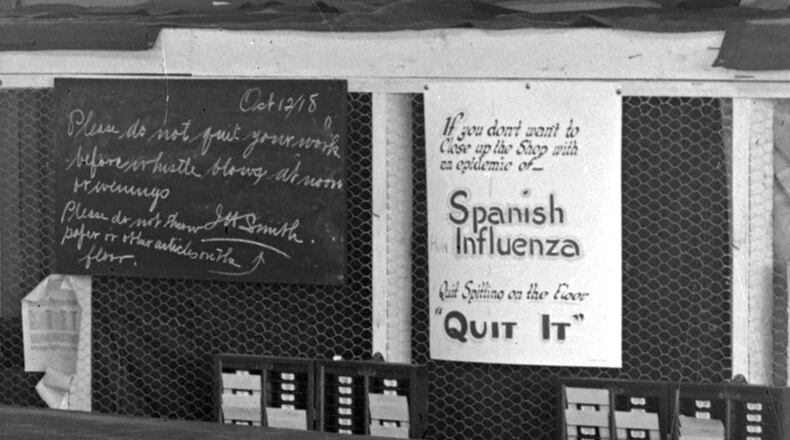 Oct 12/18
Please do not quit your work
before whistle blows at noon
or evenings
J H Smith.
Please do not throw
paper or other articles on the
floor.
If you don't want to
Close up the Shop with
an epidemic of—
Spanish
Influenza
Quit Spitting on the Floor
"QUIT IT"